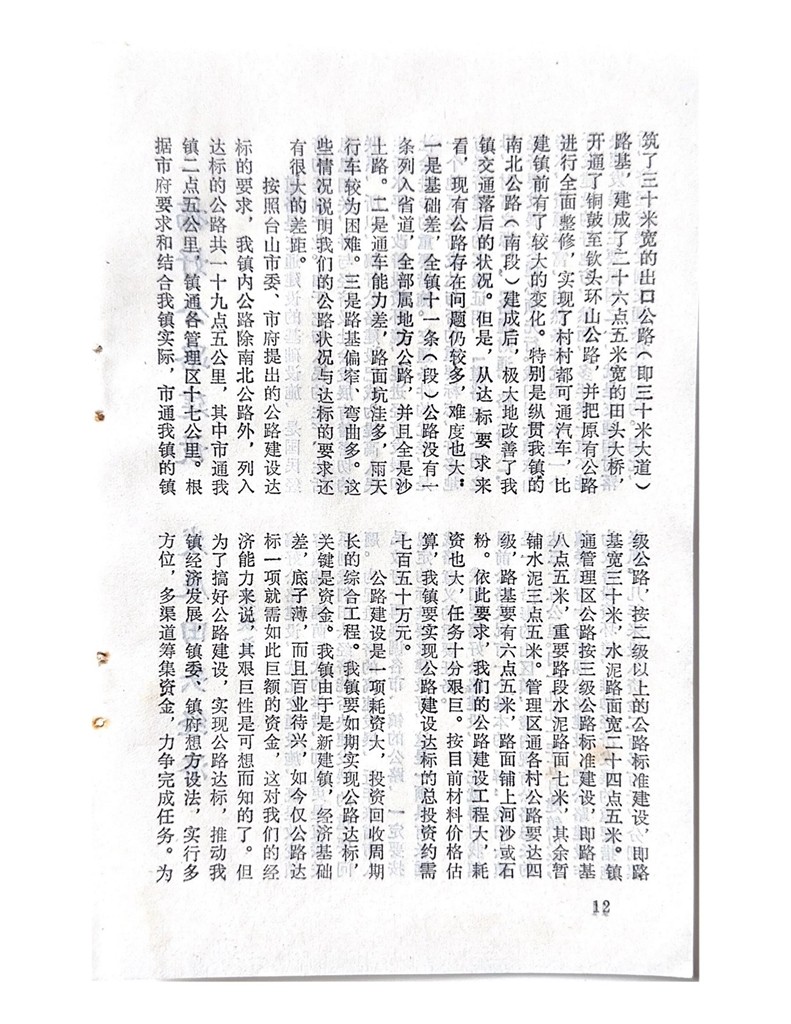 筑了三十米宽的出口公路（即三十米大道）
路基，建成了二十六点五米宽的田头大桥，
开通了铜鼓至钦头环山公路，并把原有公路
进行全面整修，实现了村村都可通汽车，比
建镇前有了较大的变化。特别是纵贯我镇的
南北公路（南段）建成后，极大地改善了我
镇交通落后的状况。但是，从达标要求来
看，现有公路存在问题仍较多，难度也大：
一是基础差，全镇十一条（段）公路没有一
条列入省道，全部属地方公路，并且全是沙
土路。二是通车能力差，路面坑洼多，雨天
行车较为困难。三是路基偏窄、弯曲多。这
些情况说明我们的公路状况与达标的要求还
有很大的差距。
按照台山市委、市府提出的公路建设达
标的要求，我镇内公路除南北公路外，列入
达标的公路共一十九点五公里，其中市通我
镇二点五公里，镇通各管理区十七公里。根
据市府要求和结合我镇实际，市通我镇的镇
级公路，按二级以上的公路标准建设，即路
基宽三十米，水泥路面宽二十四点五米。镇
通管理区公路按三级公路标准建设，即路基
八点五米，重要路段水泥路面七米，其余暂
铺水泥三点五米。管理区通各村公路要达四
级，路基要有六点五米，路面铺上河沙或石
粉。依此要求，我们的公路建设工程大，耗
资也大，任务十分艰巨。按目前材料价格估
算，我镇要实现公路建设达标的总投资约需
七百五十万元。
公路建设是一项耗资大，投资回收周期
长的综合工程。我镇要如期实现公路达标，
关键是资金。我镇由于是新建镇，经济基础
差，底子薄，而且百业待兴，如今仅公路达
标一项就需如此巨额的资金，这对我们的经
济能力来说，其艰巨性是可想而知的了。但
为了搞好公路建设，实现公路达标，推动我
镇经济发展，镇委、镇府想方设法，实行多
方位，多渠道筹集资金，力争完成任务。为
12